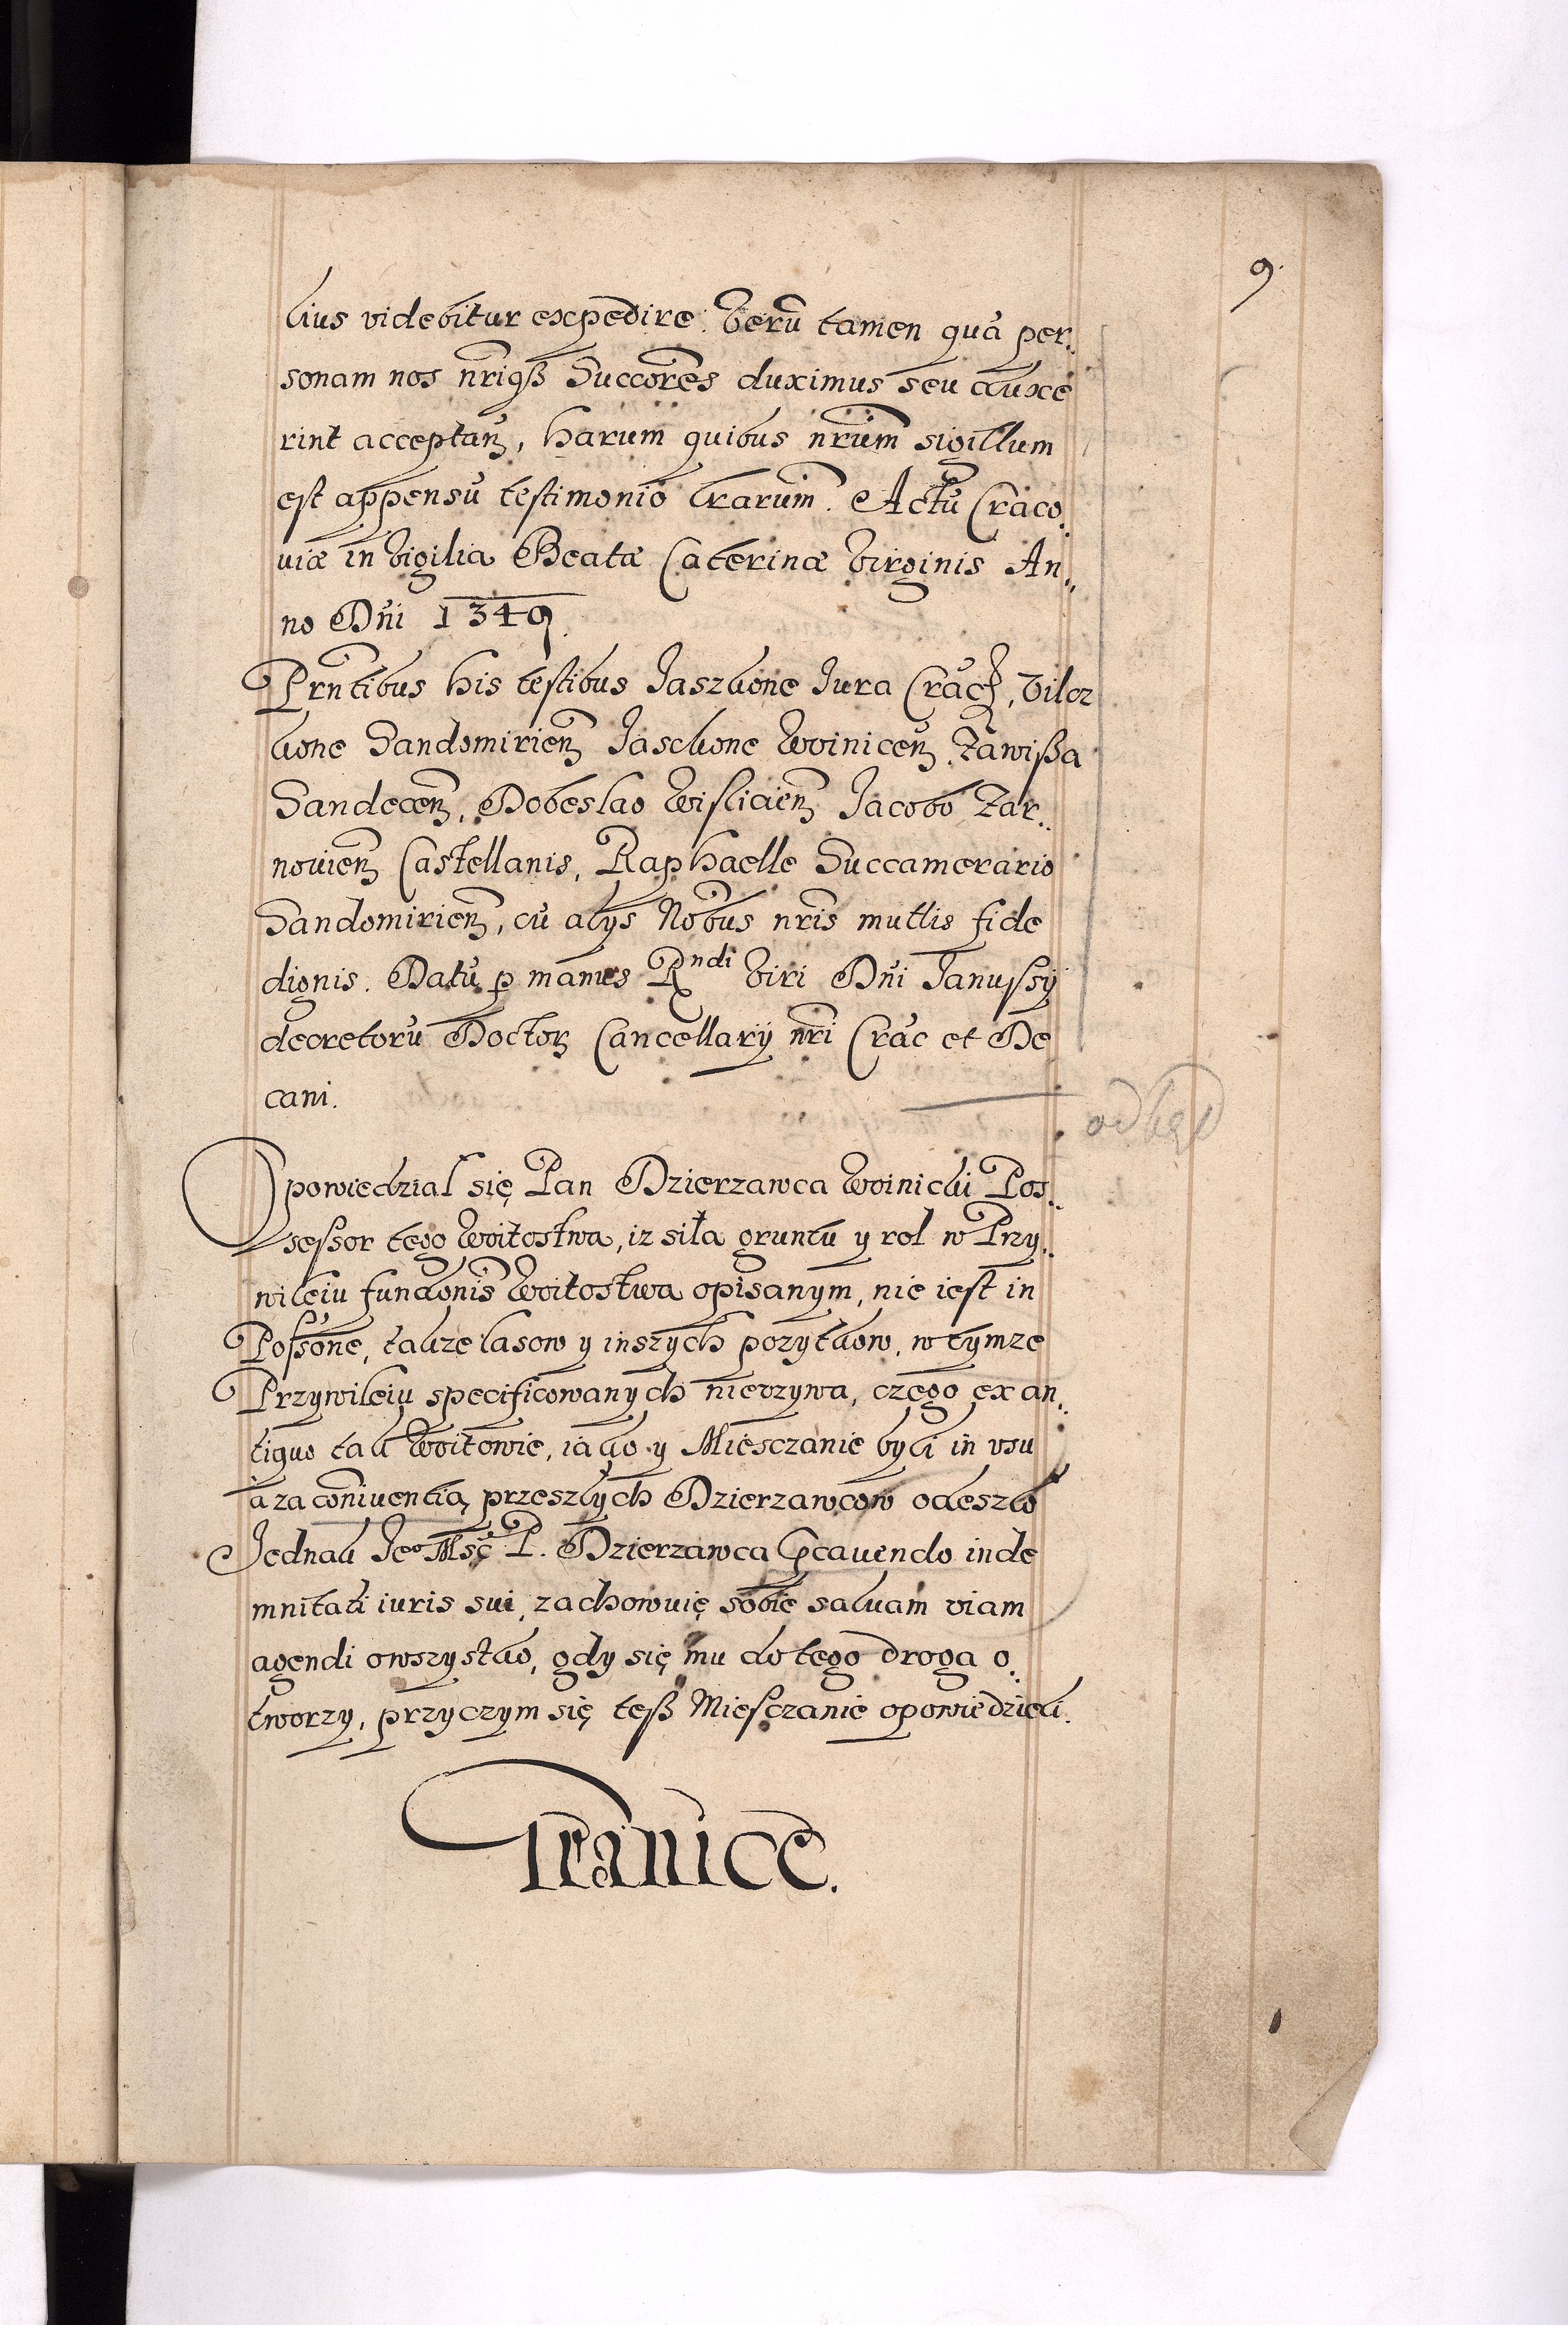 9.
lius videbitur expedire. Verũ tamen quã per„
sonam nos nr̃iqß Succõres duximus seu duxe
rint acceptañ, harum quibus nr̃um sigillum
est appensũ testimonio lr̃arum. Actũ Craco„
viæ in Vigilia Beatæ Caterinæ Virginis An„
no Dñi 1349.
Prñtibus his testibus Jaszkone Jura Crac̃, Vilcz
kone Sandomirieñ Jaschone Woiniceñ, Zawißa
Sandeceñ, Dobeslao Wislicieñ Jacobo Zar„
novieñ Castellanis, Raphaelle Succamerario
Sandomirieñ, cũ alys Nobus nr̃is multis fide
dignis. Datũ p manus Rndi Viri Dñi Janussÿ
decretorũ Doctor̃ Cancellarÿ nr̃i Crac̃ et De
cani.
od kąd
Opowiedzial się Pan Dzierzawca Woinicki Pos„
sessor tego Woitostwa, iz siła gruntu y rol w Przy„
wileiu fundõnis Woitostwa opisanym, nie iest in
Possõne, takze lasow y inszych pozytkow, w tymze
Przywileiu specificowanych nievzywa, czego ex an„
tiquo tak Woitowie, iako y Miesczanie byli in vsu
a za coniventią przeszłych Dzierzawcow odeszło
Jednak Jeo Msć P. Dzierzawca Pcavendo inde
mnitati iuris sui, zachowuię sobie salvam viam
agendi owszystko, gdy się mu do tego droga o„
tworzy, przyczym się teß Miesczanie opowiedzieli.
Granice.